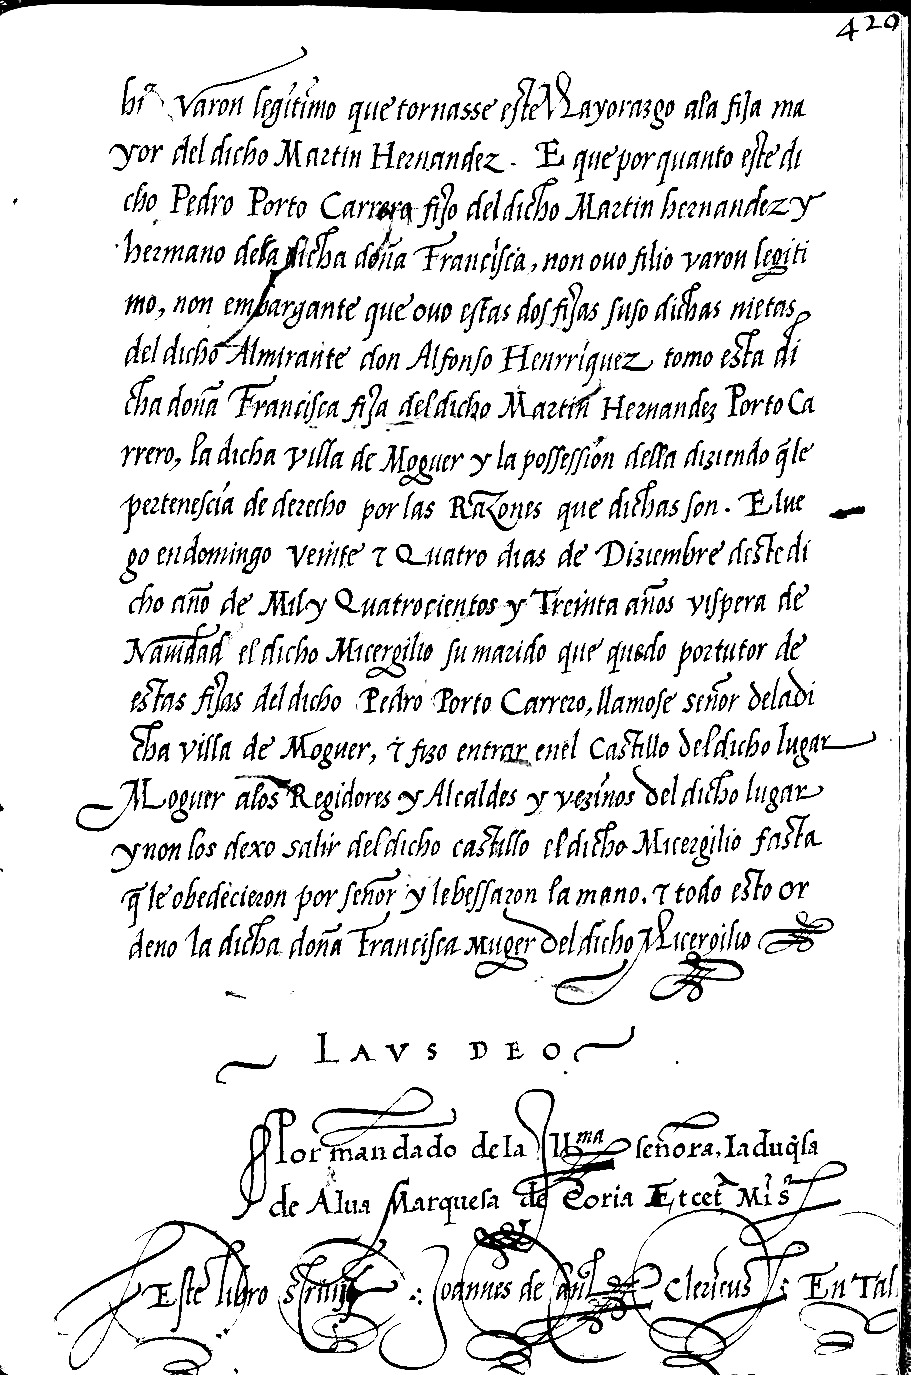 420
hi° varon legitimo que tornasse este Mayorazgo ala fija ma
yor del dicho Martin Hernandez. E que por quanto este di
cho Pedro Porto Carrero fijo del dicho Martin hernandez y
hermano dela dicha doña Francisca, non ovo filio varon legiti
mo, non embargante que ovo estas dos fijas suso dichas nietas
del dicho Almirante don Alfonso Henrriquez tomo esta di
cha doña Francisca fija del dicho Martin Hernandez Porto Ca
rrero, la dicha villa de Moguer y la possession della diziendo q̃ le
pertenescia de derecho por las Razones que dichas son. E lue
go en domingo veinte ⁊ Quatro dias de Diziembre deste di
cho año de Mil y Quatrocientos y Treinta años vispera de
Navidad el dicho Micergilio su marido que quedo por tutor de
estas fijas del dicho Pedro Porto Carrero, llamose señor dela di
cha villa de Moguer, ⁊ fizo entrar enel Castillo del dicho lugar
Moguer alos Regidores y Alcaldes y vezinos del dicho lugar
y non los dexo salir del dicho castillo el dicho Micergilio fasta
q̃ le obedecieron por señor y le bessaron la mano. ⁊ todo esto or
deno la dicha doña Francisca Muger del dicho Micergilio
LAVS DEO
Por mandado de la Illma señora, la duq̃sa
de Alva Marquesa de Coria Etcet Mi s
Este libro : Joannes de Clericus : En Tal